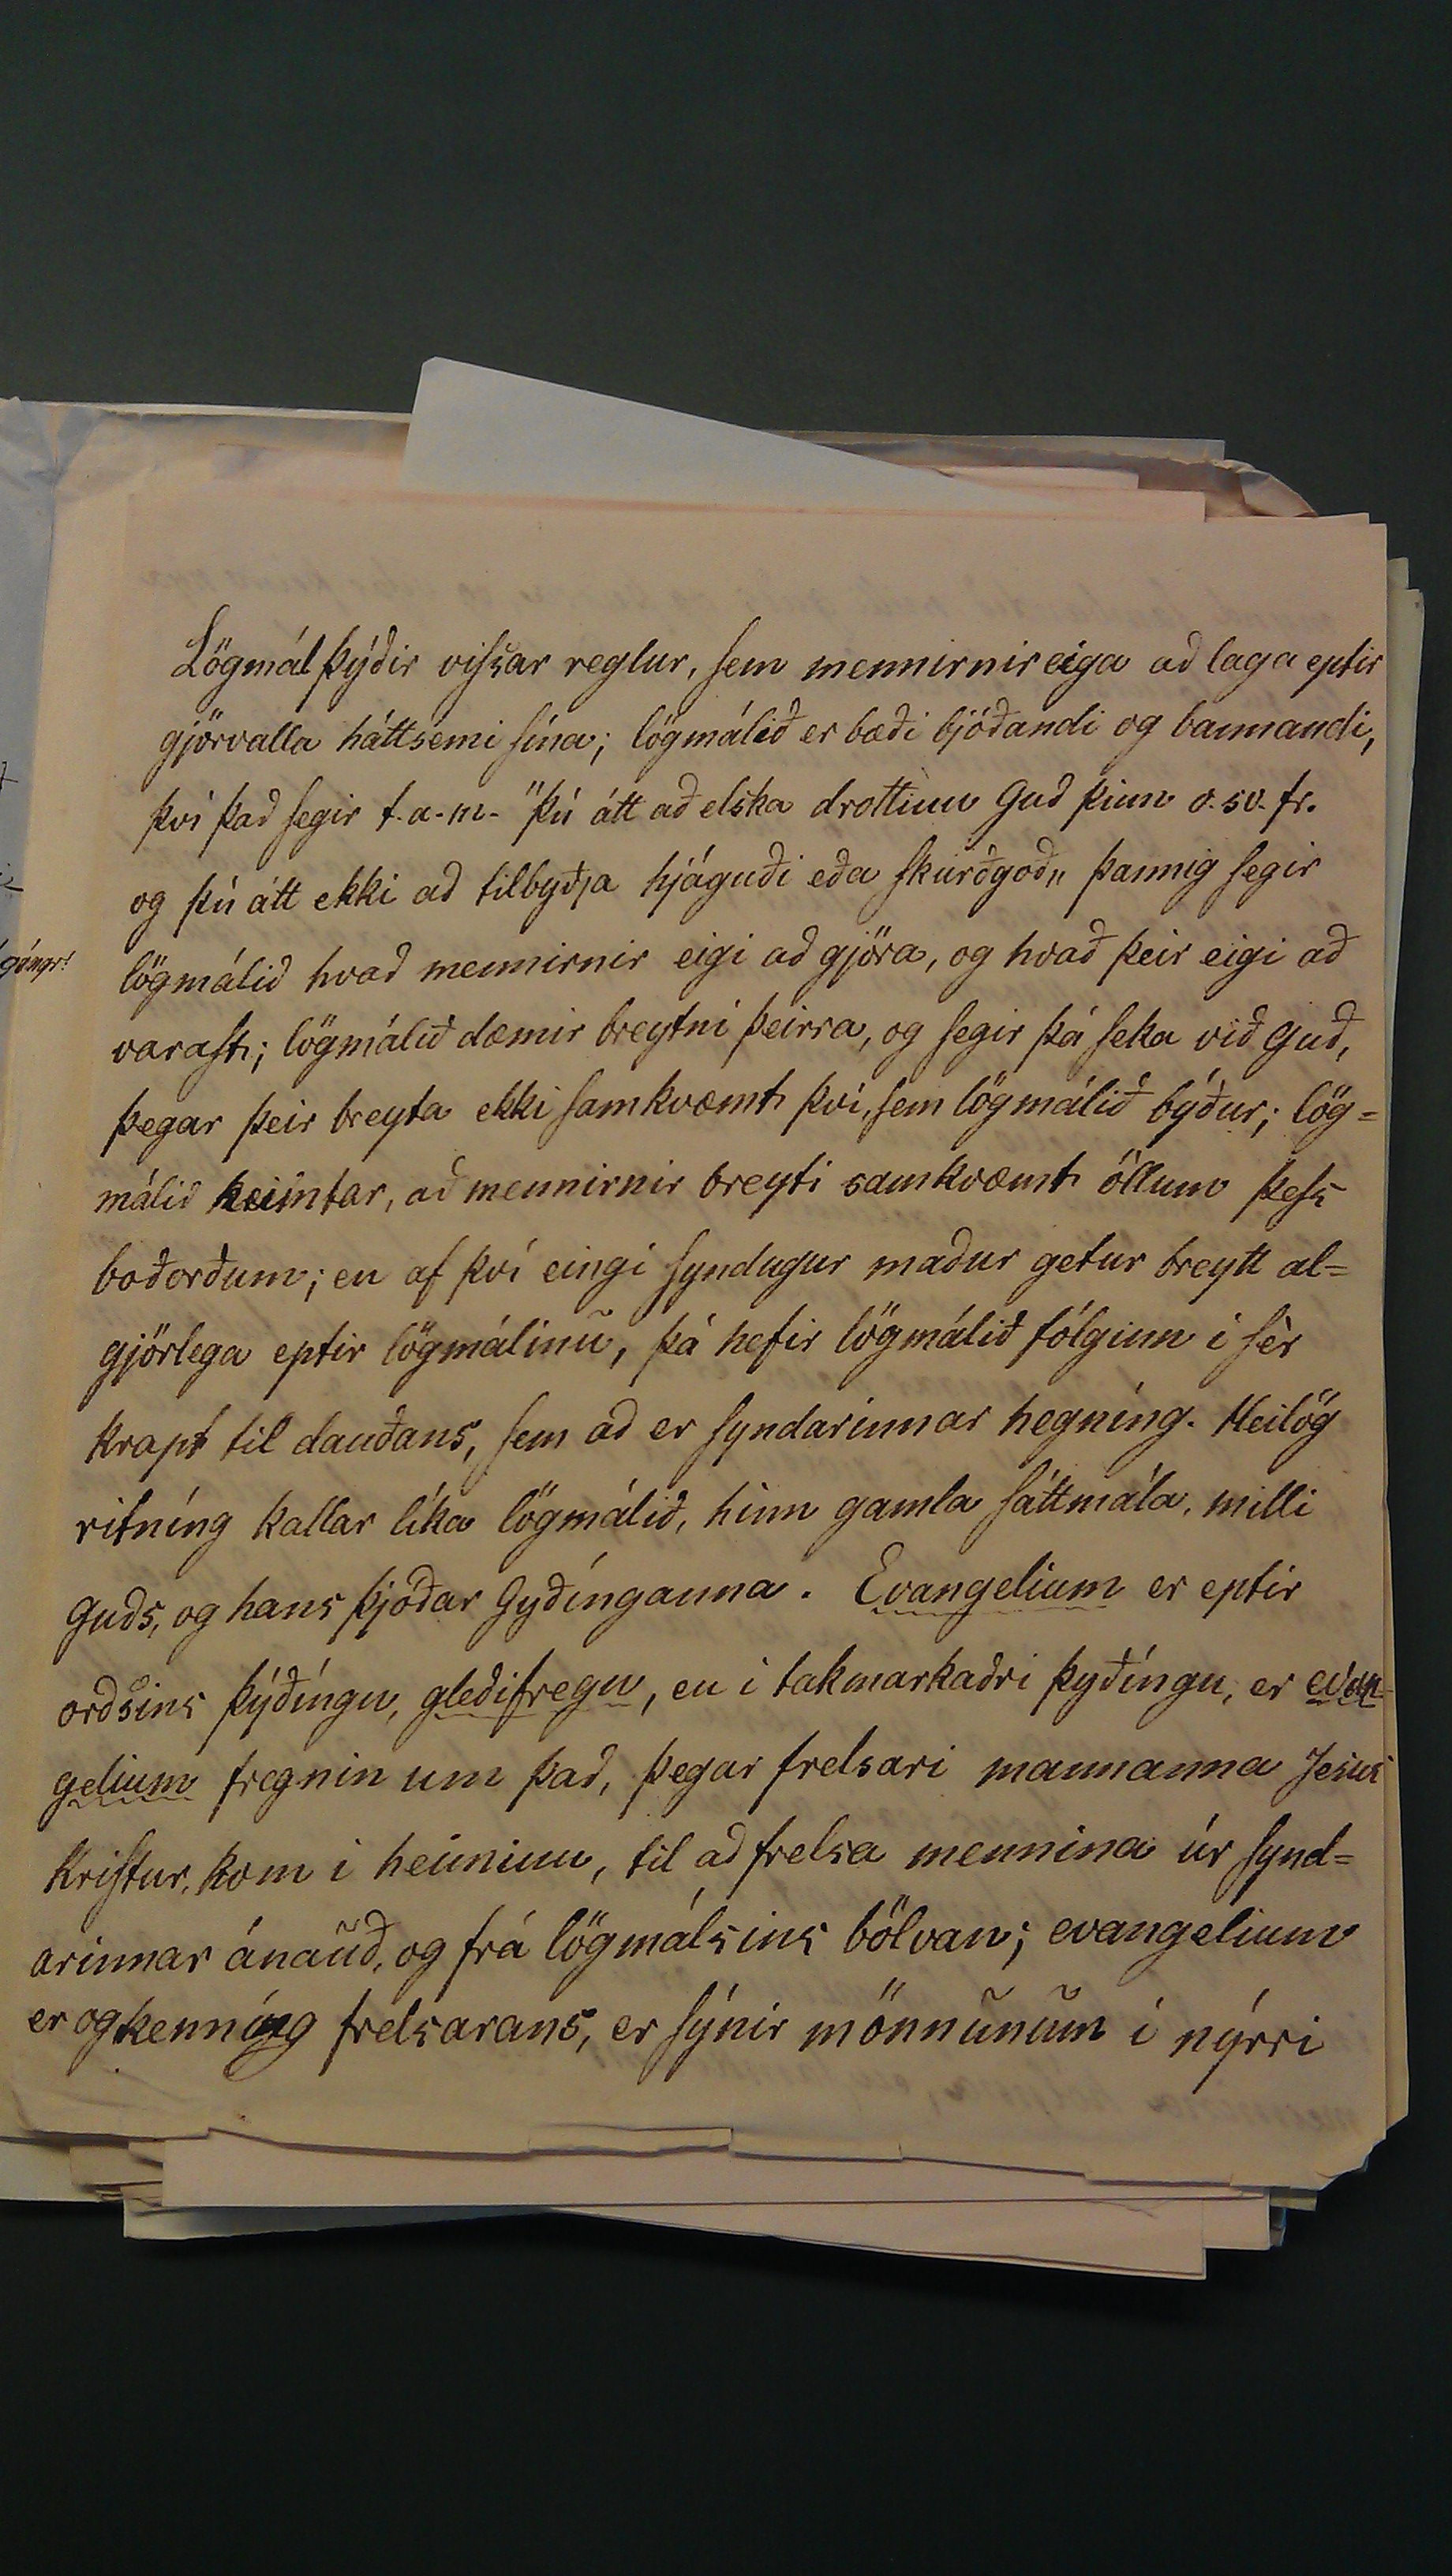 Lögmál þýðir vissar reglur, sem mennirnir eiga að laga eptir
gjörvalla háttsemi sína; lögmálið er bæði bjóðandi og bannandi,
því það segir t.a.m. "þú átt að elska drottinn Guð þinn o.sv.fr.
og þú átt ekki að tilbyðja hjáguði eða skurðgoð„ þannig segir
lögmálið hvað mennirnir eigi að gjöra, og hvað þeir eigi að
varast; lögmálið dæmir breytni þeirra, og segir þá seka við Guð,
þegar þeir breyta ekki samkvæmt því, sem lögmálið býður; lög=
málið heimtar, að mennirnir breyti samkvæmt öllum þess
boðorðum; en af því eingi syndugur maður getur breytt al=
gjörlega eptir lögmálinu, þá hefir lögmálið fólginn í sèr
krapt til dauðans, sem að er syndarinnar hegníng. Heilög
ritníng kallar líka lögmálið, hinn gamla sáttmála, milli
Guðs, og hans þjóðar Gyðínganna. Evangelium er eptir
orðsins þýðíngu, gleðifregn, en í takmarkaðri þyðíngu, er evan=
gelium fregnin um það, þegar frelsari mannanna Jesús
Kristur, kom í heiminn, til að frelsa mennina úr synd=
arinnar ánauð, og frá lögmálsins bölvan; evangelium
er og kenníng frelsarans, er sýnir mönnunum í nýrri